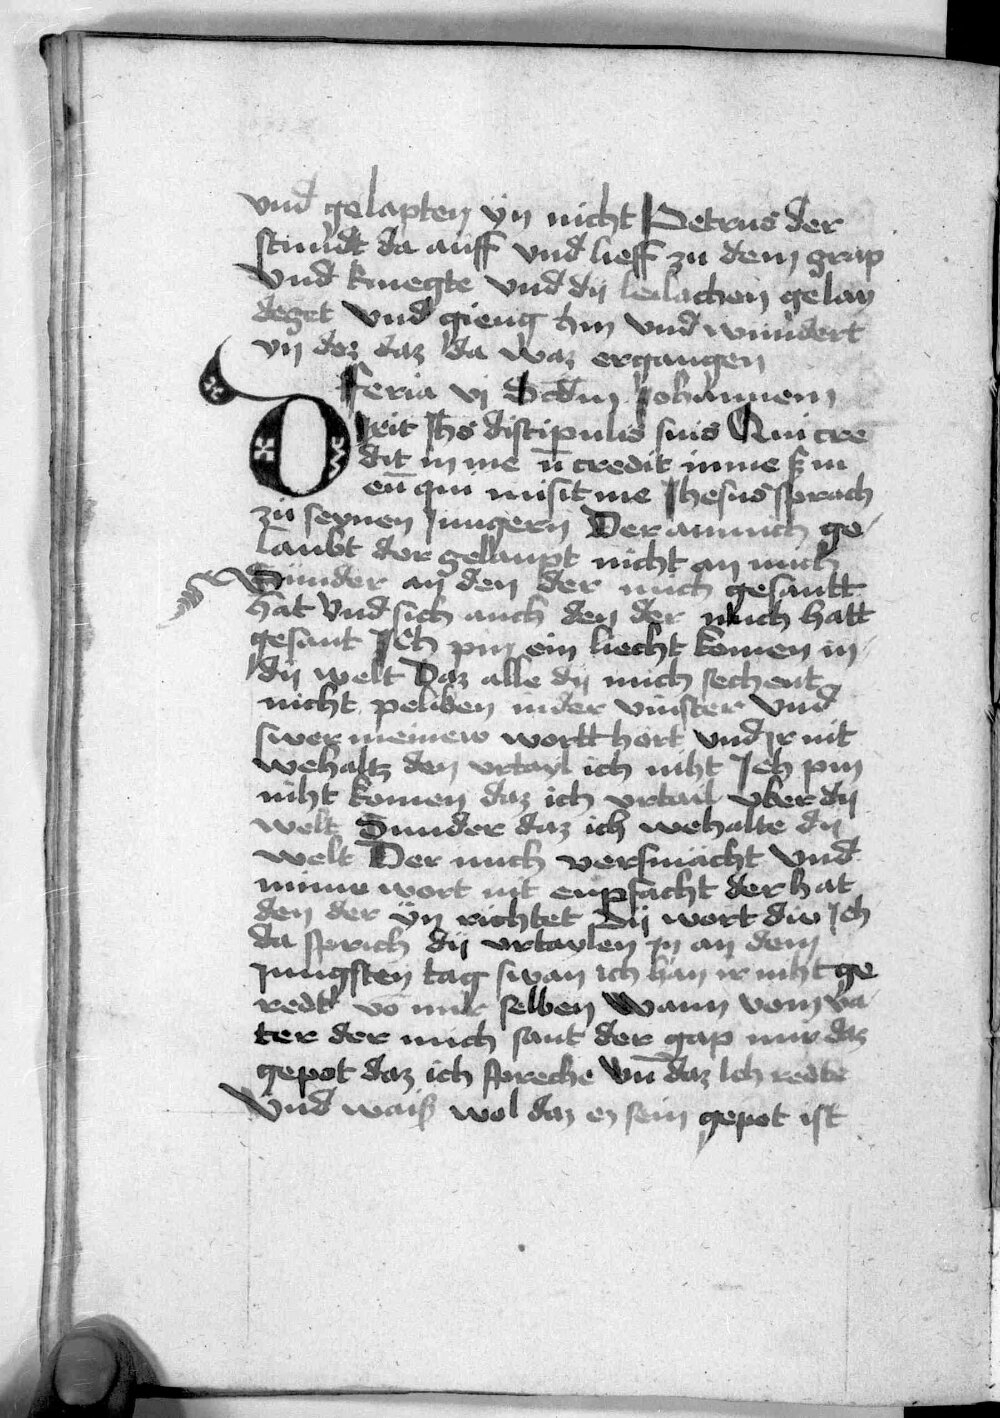 vnd gelapten ÿn nicht Petrus der
stundt da auff vnd lieff zu dem grap
vnd kniegte vnd dij leilachen gelay
deget vnd gieng hin vnd wundert
yn dez daz da waz ergangen
Feria vj Scdm Johannem
Dixit Jhs discipulis suis Qui cre
dit in me nō credit in me sz in
eū qui misit me Jhesus sprach
zu seynen Jungern Der an mich ge
laubt der gelaupt nicht an mich
Sunder an den der mich gesantt
hat Vnd sich auch den der mich hatt
gesant Ich pin ein liecht komen in
dij welt Daz alle dij mich sechent
nicht peliben in der vinster Vnd
swer meinew wortt hort vnd ir nit
wehaltz den vrtayl ich niht Ich pin
niht komen daz ich vrtail vber dij
welt Sunder daz ich wehalte dij
welt Der mich versmacht Vnd
minne wort nit enpfacht der hat
den der ÿn richtet Dij wort diw Ich
da sprich dij vrtaylen in an dem
Jungsten tag swan ich han ir niht ge
redt vō mir selben Wann vom va
ter der mich sant der gap mir daz
gepot daz ich spreche Vn̄ daz Ich redte
Vnd waiß wol daz ez sein gepot ist